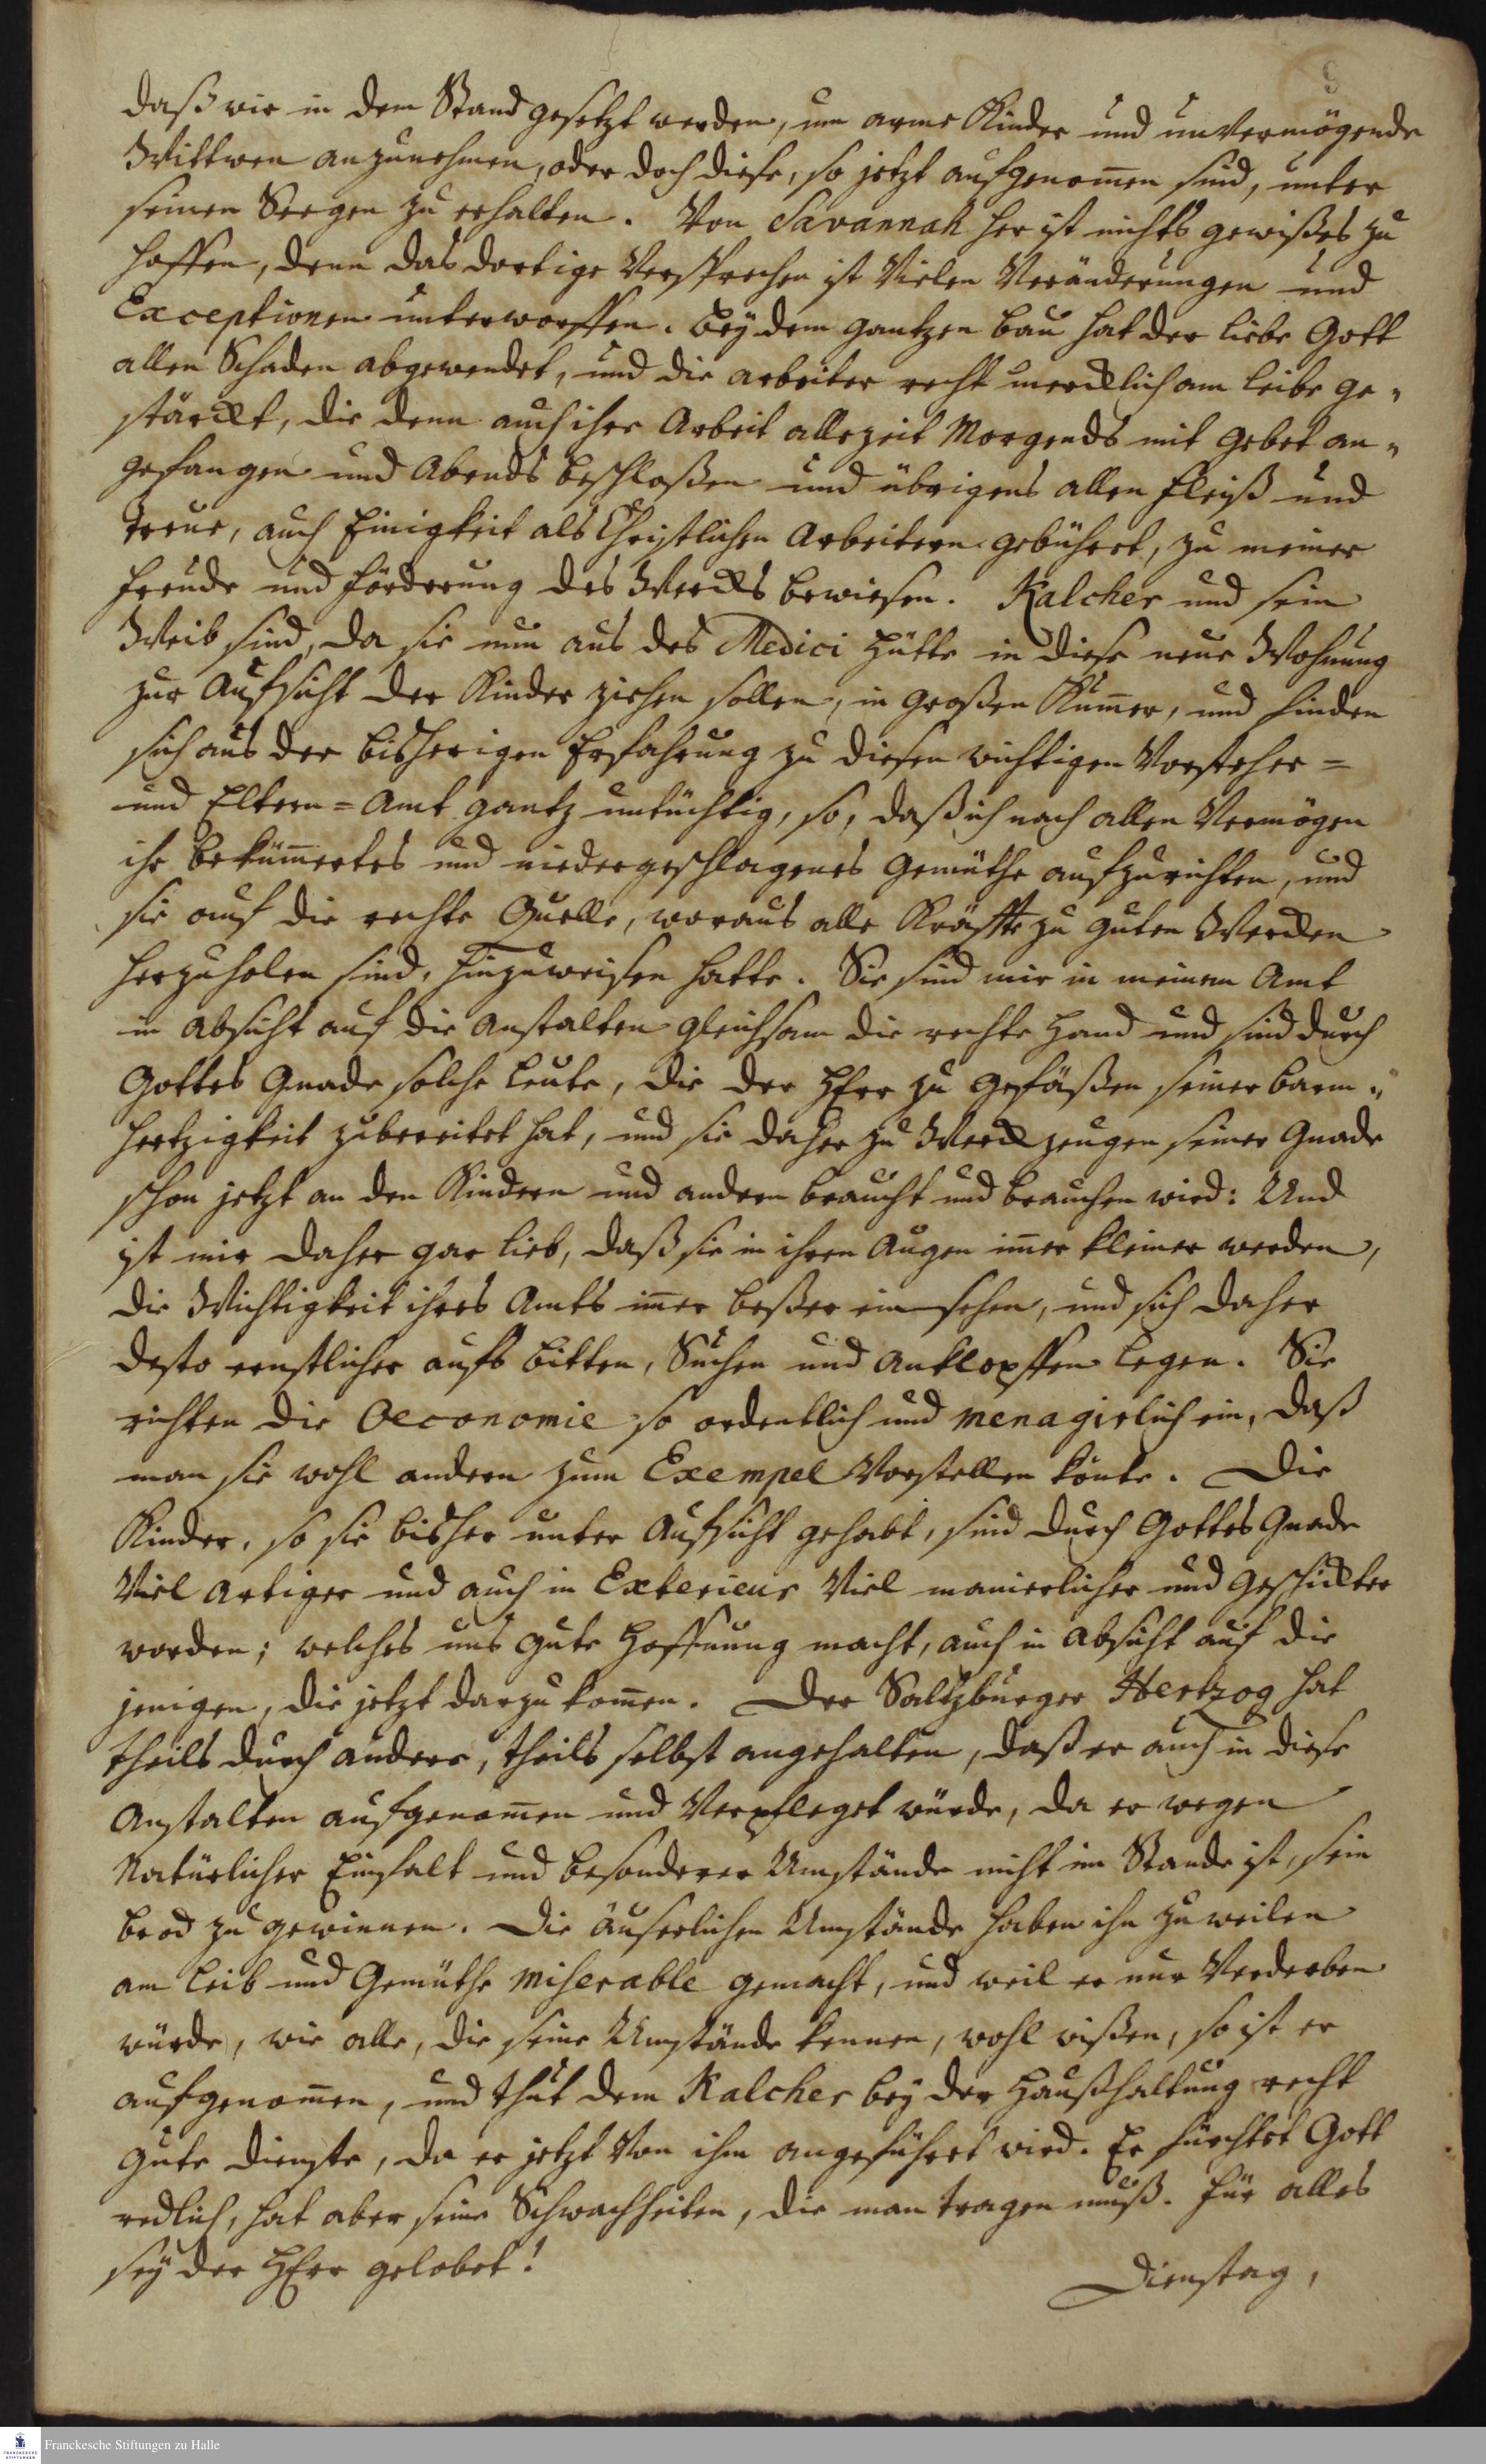 daß wir in dem Stand gesetzt werden, um arme Kinder und unvermögende
Wittwen anzunehmen, oder doch diese, so jetzt aufgenom̅en sind, unter
seinen Seegen zu erhalten. Von Savannah her ist nichts gewißes zu
hoffen, denn das dortige Versprechen ist Vielen Veränderungen und
Exceptionen unterworffen. Bey dem gantzen bau hat der liebe Gott
allen Schaden abgewendet, und die arbeiter recht mercklich am Leibe ge„
stärckt, die denn auch ihre Arbeit allezeit Morgends mit Gebet an„
gefangen und Abends beschloßen und übrigens allen Fleiß und
Treue, auch Einigkeit als Christlichen Arbeitern gebühret, zu meiner
Freude und Förderung des Wercks bewiesen. Kalcher und sein
Weib sind, da sie nun aus des Medici Hütte in diese neue Wohnung
zur Aufsicht der Kinder ziehen sollen, in großen Kum̅er, und finden
sich aus der bisherigen Erfahrung zu diesen wichtigen Vorsteher=
und Eltern=Amt gantz untüchtig, so, daß ich nach allen Vermögen
ihr beküm̅ertes und niedergeschlagenes Gemüthe aufzurichten, und
sie auf die rechte Quelle, woraus alle Kräffte zu guten Wercken
herzuholen sind, hinzuweisen hatte. Sie sind mir in meinem Amt
in absicht auf die Anstalten gleichsam die rechte Hand und sind durch
Gottes Gnade solche Leute, die der HErr zu Gefäßen seiner barm„
hertzigkeit zubereitet hat, und sie daher zu Werckzeugen seiner Gnade
schon jetzt an den Kindern und andern braucht und brauchen wird: Und
ist mir daher gar lieb, daß sie in ihren Augen im̅er kleiner werden,
die Wichtigkeit ihres Amts im̅er beßer einsehen, und sich daher
desto ernstlicher aufs bitten, Suchen und Anklopffen legen. Sie
richten die Oeconomie so ordentlich und menagirlich ein, daß
man sie wohl andern zum Exempel Vorstellen könte. Die
Kinder, so sie bisher unter Aufsicht gehabt, sind durch Gottes Gnade
Viel artiger und auch in Exterieur Viel manierlicher und geschickter
worden; welches uns gute Hoffnung macht, auch in absicht auf die
jenigen, die jetzt darzu kom̅en. Der Saltzburger Hertzog hat
theils durch andere, theils selbst angehalten, daß er auch in diese
Anstalten aufgenom̅en und Verpfleget würde, da er wegen
Natürlicher Einfalt und besonderer Umstände nicht im Stande ist, sein
brod zu gewinnen. Die äuserlichen Umstände haben ihn zuweilen
am Leib und Gemüthe miserable gemacht, und weil er nur Verderben
würde, wie alle, die seine Umstände kennen, wohl wißen, so ist er
aufgenom̅en, und thut dem Kalcher bey der Haußhaltung recht
gute Dienste, da er jetzt Von ihm angeführet wird. Er fürchtet Gott
redlich, hat aber seine Schwachheiten, die man tragen muß. Für alles
sey der HErr gelobet!
Dienstag,
Franckesche Stiftungen zu Halle